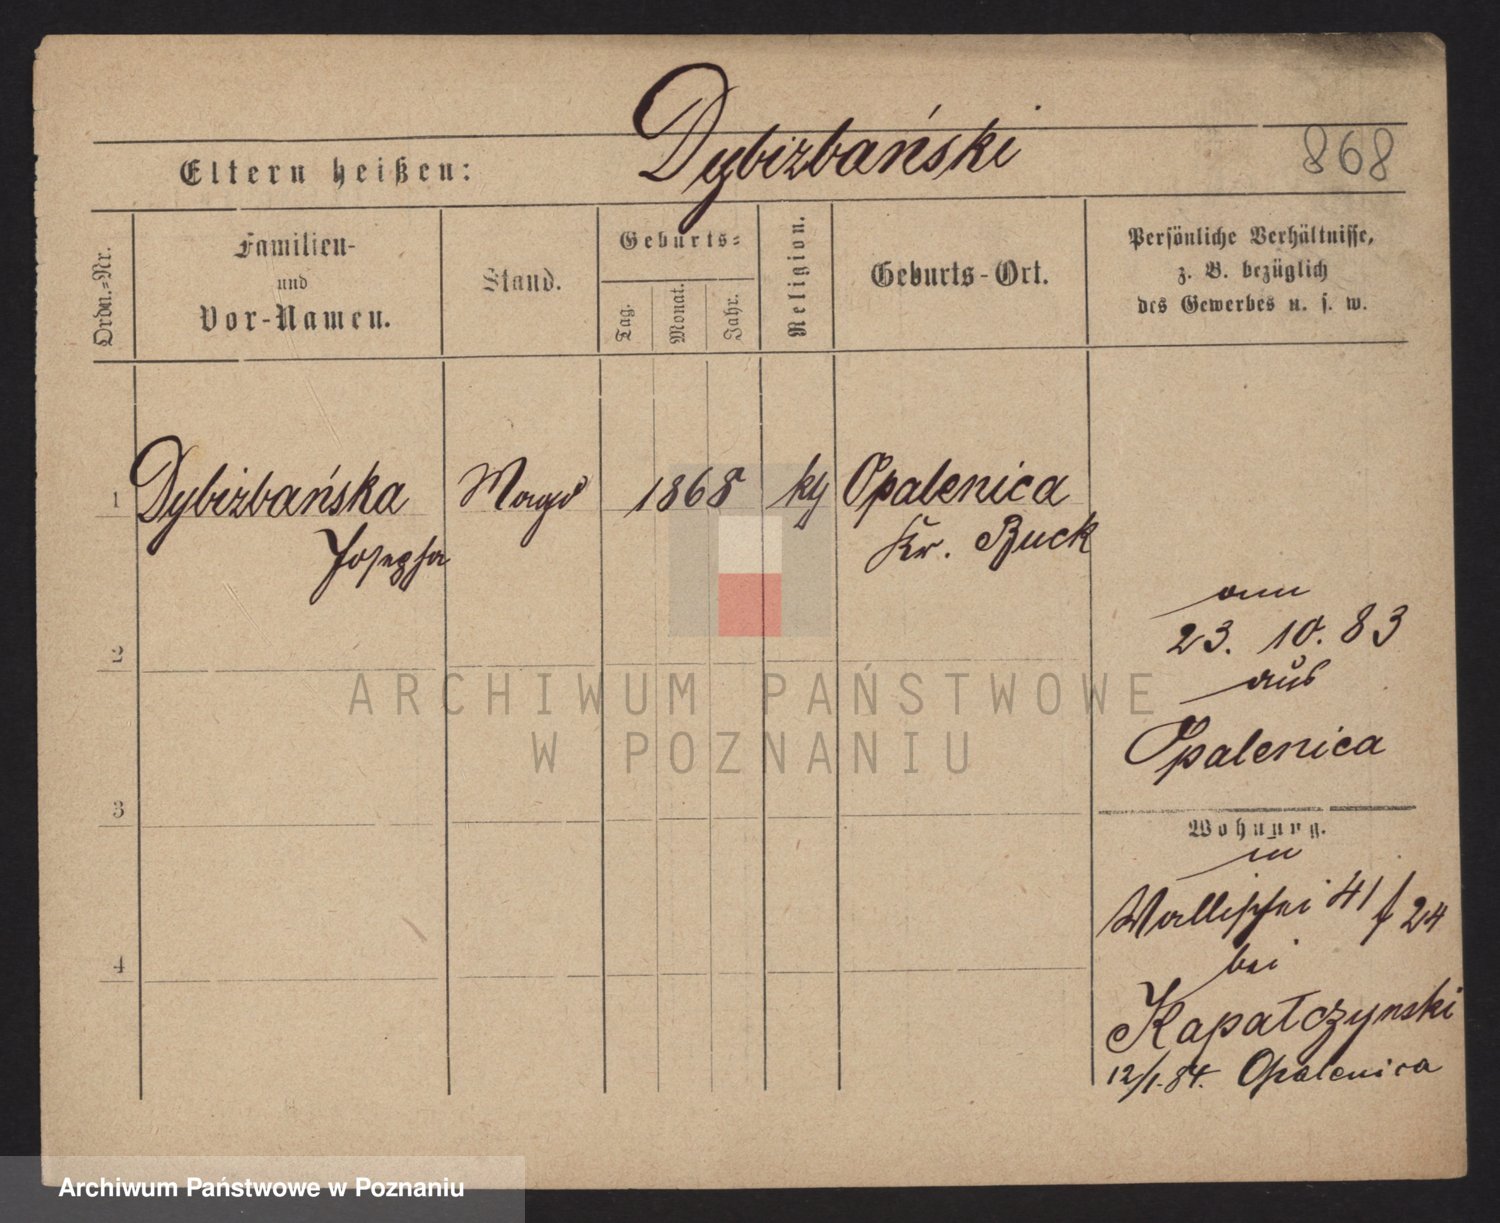 Dybizbański
868
Eltern heißen:
Ordn.-Nr.
Familien-
und
Vor-Namen.
Stand.
Geburts-
Tag.
Monat.
Jahr.
Religion.
Geburts-Ort.
Persönliche Verhältnisse,
z. B. bezüglich
des Gewerbes u. s. w.
1 Dybizbańska Magd 1868 ky Opalenica
Josepha Kr. Buck
am
23. 10. 83
aus
Opalenica
2
3
4
Wohnung.
in
Wallischei 41 f 24
bei
Kapałczynski
12/1. 84. Opalenica
ARCHIWUM PAŃSTWOWE
W POZNANIU
Archiwum Państwowe w Poznaniu